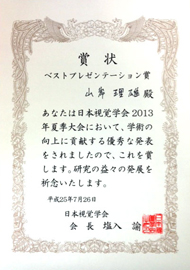 賞状
ベストプレゼンテーション賞
山岸 理雄 殿
あなたは日本視覚学会2013
年夏季大会において、学術の
向上に貢献する優秀な発表
をされましたので、これを賞
します。研究の益々の発展を
祈念いたします。
平成25年7月26日
日本視覚学会
会長 塩入 諭